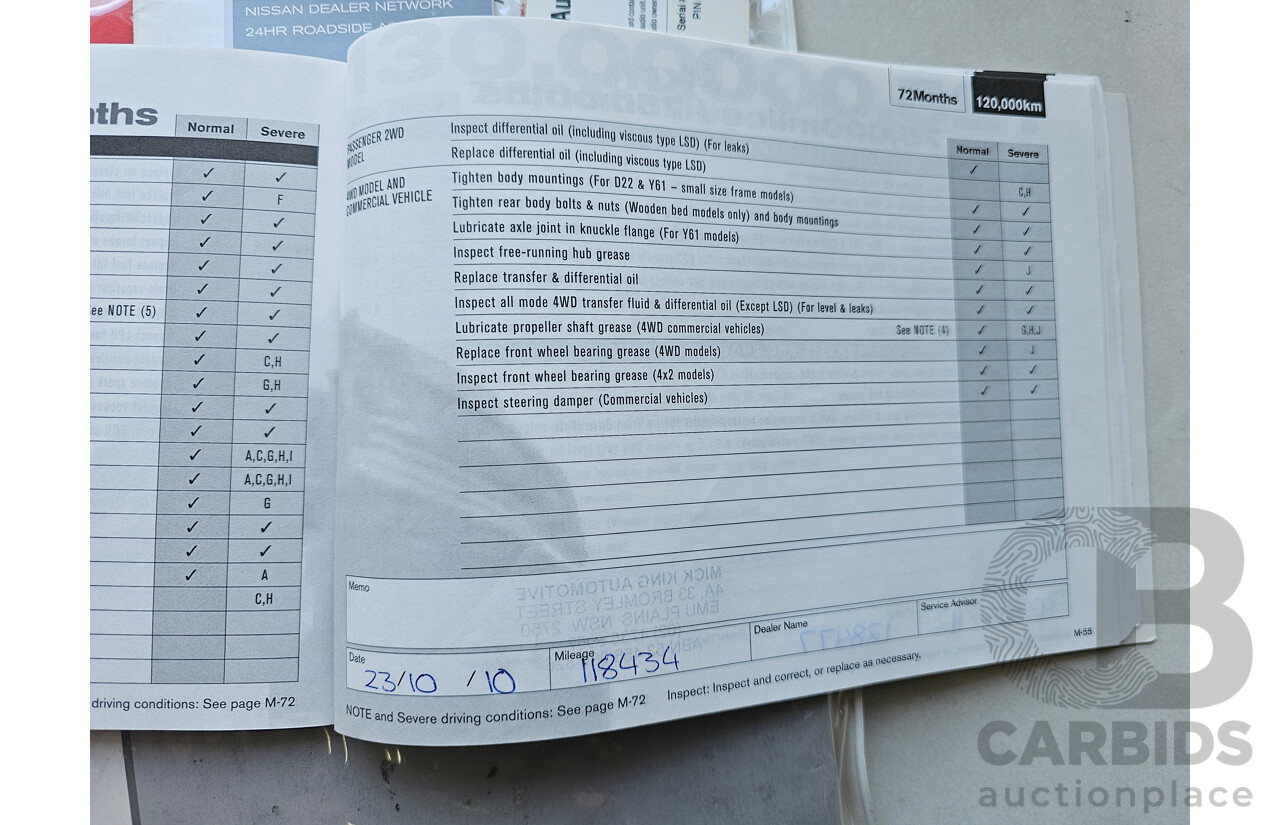 NISSAN DEALER NETWORK
24HR ROADSIDE
Serial
PIN
nths
Normal Severe
✓ ✓
✓ F
✓ ✓
✓ ✓
✓ ✓
✓ ✓
See NOTE (5) ✓ ✓
✓ ✓
✓ C,H
✓ G,H
✓ ✓
✓ ✓
✓ A,C,G,H,I
✓ A,C,G,H,I
✓ G
✓ ✓
✓ ✓
✓ A
C,H
driving conditions: See page M-72
72Months 120,000km
Normal Severe
PASSENGER 2WD MODEL
Inspect differential oil (including viscous type LSD) (For leaks) ✓
Replace differential oil (including viscous type LSD) C,H
4WD MODEL AND COMMERCIAL VEHICLE
Tighten body mountings (For D22 & Y61 – small size frame models) ✓ ✓
Tighten rear body bolts & nuts (Wooden bed models only) and body mountings ✓ ✓
Lubricate axle joint in knuckle flange (For Y61 models) ✓ ✓
Inspect free-running hub grease ✓ J
Replace transfer & differential oil ✓ ✓
Inspect all mode 4WD transfer fluid & differential oil (Except LSD) (For level & leaks) ✓ ✓
Lubricate propeller shaft grease (4WD commercial vehicles) See NOTE (4) ✓ G,H,J
Replace front wheel bearing grease (4WD models) ✓ J
Inspect front wheel bearing grease (4x2 models) ✓ ✓
Inspect steering damper (Commercial vehicles) ✓ ✓
Memo
MICK KING AUTOMOTIVE
4A, 33 BROMLEY STREET
EMU PLAINS NSW 2750
ABN
Date 23/10 /10 Mileage 118434 Dealer Name Service Advisor
M-55
NOTE and Severe driving conditions: See page M-72 Inspect: Inspect and correct, or replace as necessary.
CARBIDS
auctionplace